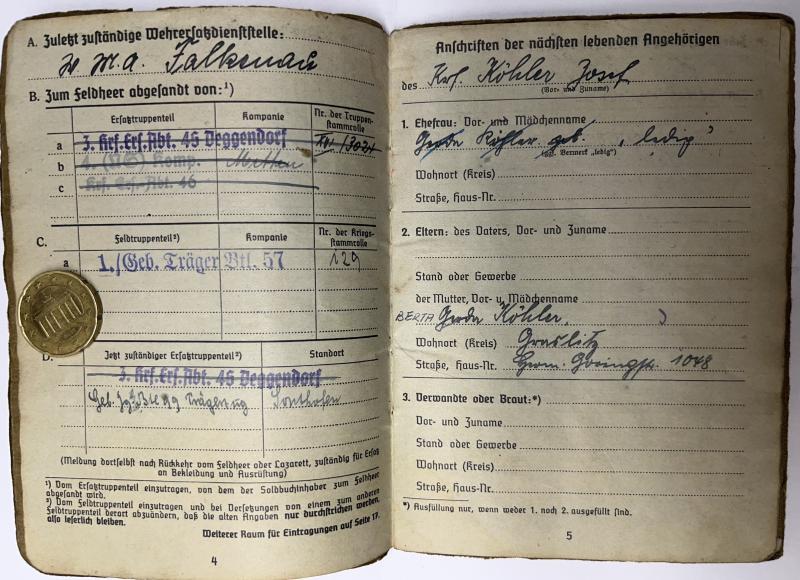 A. Zuletzt zuständige Wehrersatzdienststelle:
W. M. A. Falkenau
B. Zum Feldheer abgesandt von:¹)
Ersatztruppenteil Kompanie Nr. der Truppenstammrolle
a 3. Krf. Ers. Abt. 46 Deggendorf /3024
b Komp. Metten
c Krf. Ers. Abt. 46
C. Feldtruppenteil²) Kompanie Nr. der Kriegsstammrolle
a 1./Geb. Träger Btl. 57 129
D. Jetzt zuständiger Ersatztruppenteil²) Standort
3. Krf. Ers. Abt. 46 Deggendorf
Geb. Jg. 99 Trägerzug Sonthofen
(Meldung dortselbst nach Rückkehr vom Feldheer oder Lazarett, zuständig für Ersatz
an Bekleidung und Ausrüstung)
¹) Vom Ersatztruppenteil einzutragen, von dem der Soldbuchinhaber zum Feldheer
abgesandt wird.
²) Vom Feldtruppenteil einzutragen und bei Versetzungen von einem zum anderen
Feldtruppenteil derart abzuändern, daß die alten Angaben nur durchstrichen werden,
also leserlich bleiben.
Weiterer Raum für Eintragungen auf Seite 17.
4
Anschriften der nächsten lebenden Angehörigen
des Krf. Köhler Josef
(Vor- und Zuname)
1. Ehefrau: Vor- und Mädchenname
Gerda Köhler geb. „ledig"
(ggf. Vermerk „ledig")
Wohnort (Kreis)
Straße, Haus-Nr.
2. Eltern: des Vaters, Vor- und Zuname
Stand oder Gewerbe
der Mutter, Vor- u. Mädchenname
BERTA Gerda Köhler,
Wohnort (Kreis) Graslitz
Straße, Haus-Nr. Herm. Göringstr. 1048
3. Verwandte oder Braut:*)
Vor- und Zuname
Stand oder Gewerbe
Wohnort (Kreis)
Straße, Haus-Nr.
*) Ausfüllung nur, wenn weder 1. noch 2. ausgefüllt sind.
5